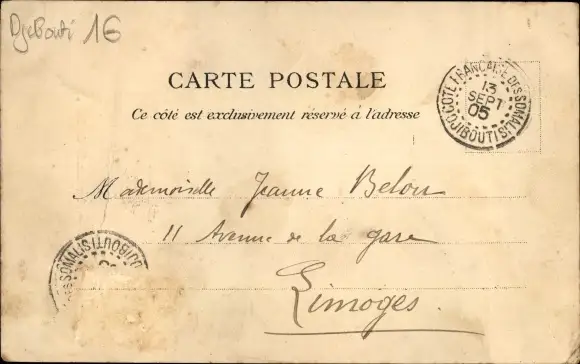 Djibouti 16
CARTE POSTALE
Ce côté est exclusivement réservé à l'adresse
COTE FRANÇAISE DES SOMALIS
13
SEPT
05
DJIBOUTI
Mademoiselle Jeanne Belon
11 Avenue de la gare
Limoges
SOMALIS DJIBOUTI